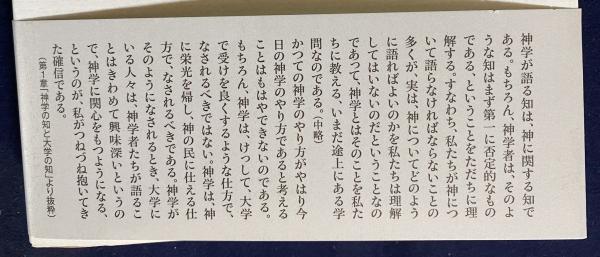 神学が語る知は、神に関する知で
ある。もちろん、神学者は、そのよ
うな知はまず第一に否定的なもの
である、ということをただちに理
解する。すなわち、私たちが神につ
いて語らなければならないことの
多くが、実は、神についてどのよう
に語ればよいのかを私たちは理解
してはいないのだということなの
であって、神学とはそのことを私た
ちに教える、いまだ途上にある学
問なのである。（中略）
かつての神学のやり方がやはり今
日の神学のやり方であると考える
ことはもはやできないのである。
もちろん、神学は、けっして、大学
で受けを良くするような仕方で、
なされるべきではない。神学は、神
に栄光を帰し、神の民に仕える仕
方で、なされるべきである。神学が
そのようになされるとき、大学に
いる人々は、神学者たちが語るこ
とはきわめて興味深いというの
で、神学に関心をもつようになる、
というのが、私がつねづね抱いてき
た確信である。
（第1章「神学の知と大学の知」より抜粋）